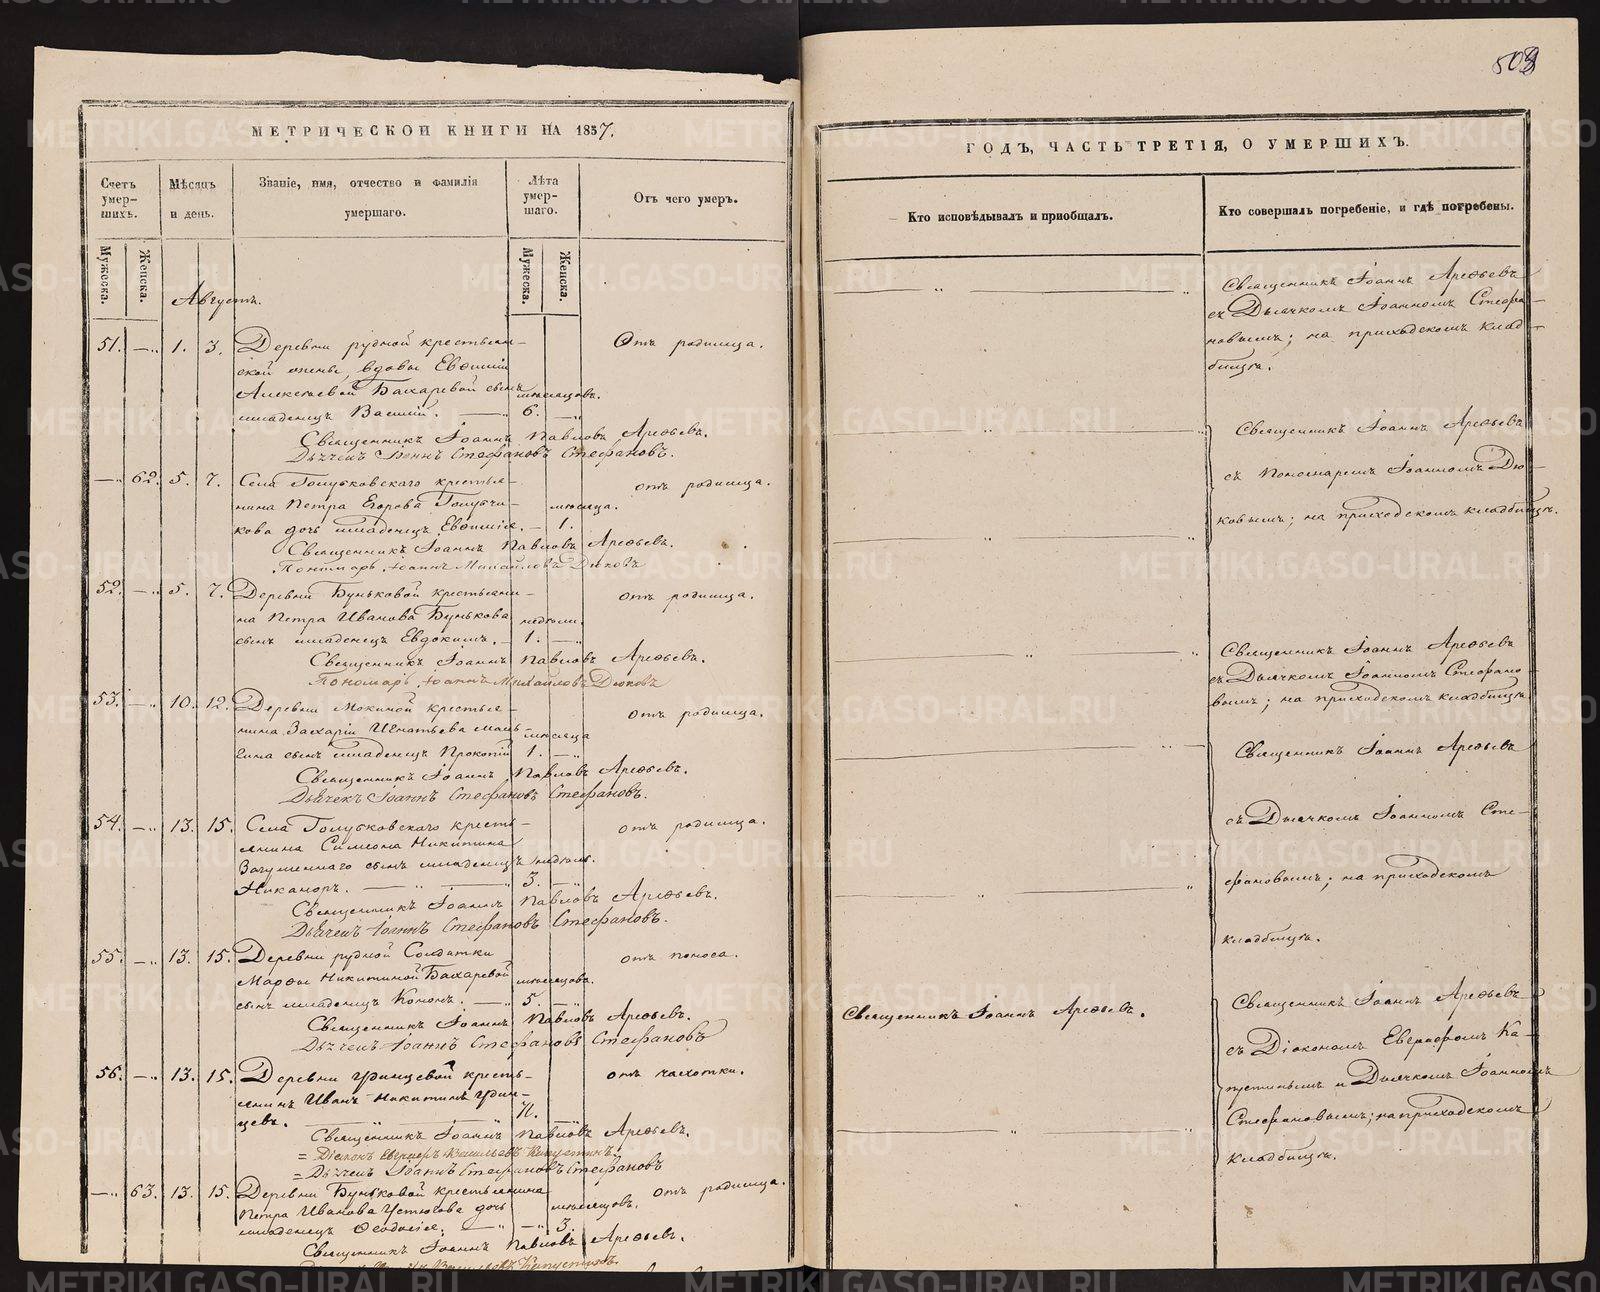 508
МЕТРИЧЕСКОЙ КНИГИ НА 1857.
Счетъ умер-шихъ.
Мѣсяцъ и день.
Званіе, имя, отчество и фамилія умершаго.
Лѣта умер-шаго.
Отъ чего умеръ.
Мужеска.
Женска.
Мужеска.
Женска.
Августъ.
51. — „ 1. 3. Деревни рудной крестьян- Отъ родимца.
ской жены, вдовы Евфиміи
Алексѣевой Бахаревой сынъ мѣсяцовъ.
младенецъ Василій. — 6. —„
Священникъ Іоаннъ Павловъ Арефьевъ.
Дьячекъ Іоаннъ Стефановъ Стефановъ.
—„ 62. 5. 7. Села Голубковскаго крестья- отъ родимца.
нина Петра Егорова Голубчи- мѣсяца.
кова дочь младенецъ Евфимія. — 1.
Священникъ Іоаннъ Павловъ Арефьевъ.
Пономарь Іоаннъ Михайловъ Дюковъ
52. —„ 5. 7. Деревни Буньковой крестьяни- отъ родимца.
на Петра Иванова Бунькова недѣли.
сынъ младенецъ Евдокимъ. — 1. —„
Священникъ Іоаннъ Павловъ Арефьевъ.
Пономарь Іоаннъ Михайловъ Дюковъ
53. —„ 10. 12. Деревни Мокиной крестья- отъ родимца.
нина Захарія Игнатьева мѣсяца
сынъ младенецъ Прокопій 1. —„
Священникъ Іоаннъ Павловъ Арефьевъ.
Дьячекъ Іоаннъ Стефановъ Стефановъ.
54. —„ 13. 15. Села Голубковскаго кресть- отъ родимца.
янина Симеона Никитина
Загуменнаго сынъ младенецъ недѣль.
Никаноръ. — „ — 3. —„
Священникъ Іоаннъ Павловъ Арефьевъ.
Дьячекъ Іоаннъ Стефановъ Стефановъ.
55. —„ 13. 15. Деревни рудной Солдатки отъ поноса.
Марфы Никитиной Бахаревой мѣсяцовъ.
сынъ младенецъ Кононъ. — 5. —„
Священникъ Іоаннъ Павловъ Арефьевъ.
Дьячекъ Іоаннъ Стефановъ Стефановъ
56. —„ 13. 15. Деревни Удинцевой кресть- отъ чахотки.
янинъ Иванъ Никитинъ Удин-
цевъ.
Священникъ Іоаннъ Павловъ Арефьевъ.
= Діаконъ Васильевъ Капустинъ.
= Дьячекъ Іоаннъ Стефановъ Стефановъ
—„ 63. 13. 15. Деревни Буньковой крестьянина отъ родимца.
Петра Иванова Устюгова дочь мѣсяцовъ.
младенецъ Феодосія. — „ —„ 3.
Священникъ Іоаннъ Павловъ Арефьевъ.
Васильевъ Капустинъ.
ГОДЪ, ЧАСТЬ ТРЕТІЯ, О УМЕРШИХЪ.
Кто исповѣдывалъ и пріобщалъ.
Кто совершалъ погребеніе, и гдѣ погребены.
Священникъ Іоаннъ Арефьевъ
съ Дьячкомъ Іоанномъ Стефа-
новымъ; на приходскомъ клад-
бищѣ.
Священникъ Іоаннъ Арефьевъ
съ Пономаремъ Іоанномъ Дю-
ковымъ; на приходскомъ кладбищѣ.
Священникъ Іоаннъ Арефьевъ
съ Дьячкомъ Іоанномъ Стефано-
вымъ; на приходскомъ кладбищѣ
Священникъ Іоаннъ Арефьевъ
съ Дьячкомъ Іоанномъ Сте-
фановымъ; на приходскомъ
кладбищѣ.
Священникъ Іоаннъ Арефьевъ.
Священникъ Іоаннъ Арефьевъ
съ Діакономъ Евграфомъ Ка-
пустинымъ и Дьячкомъ Іоанномъ
Стефановымъ; на приходскомъ
кладбищѣ.
METRIKI.GASO-URAL.RU